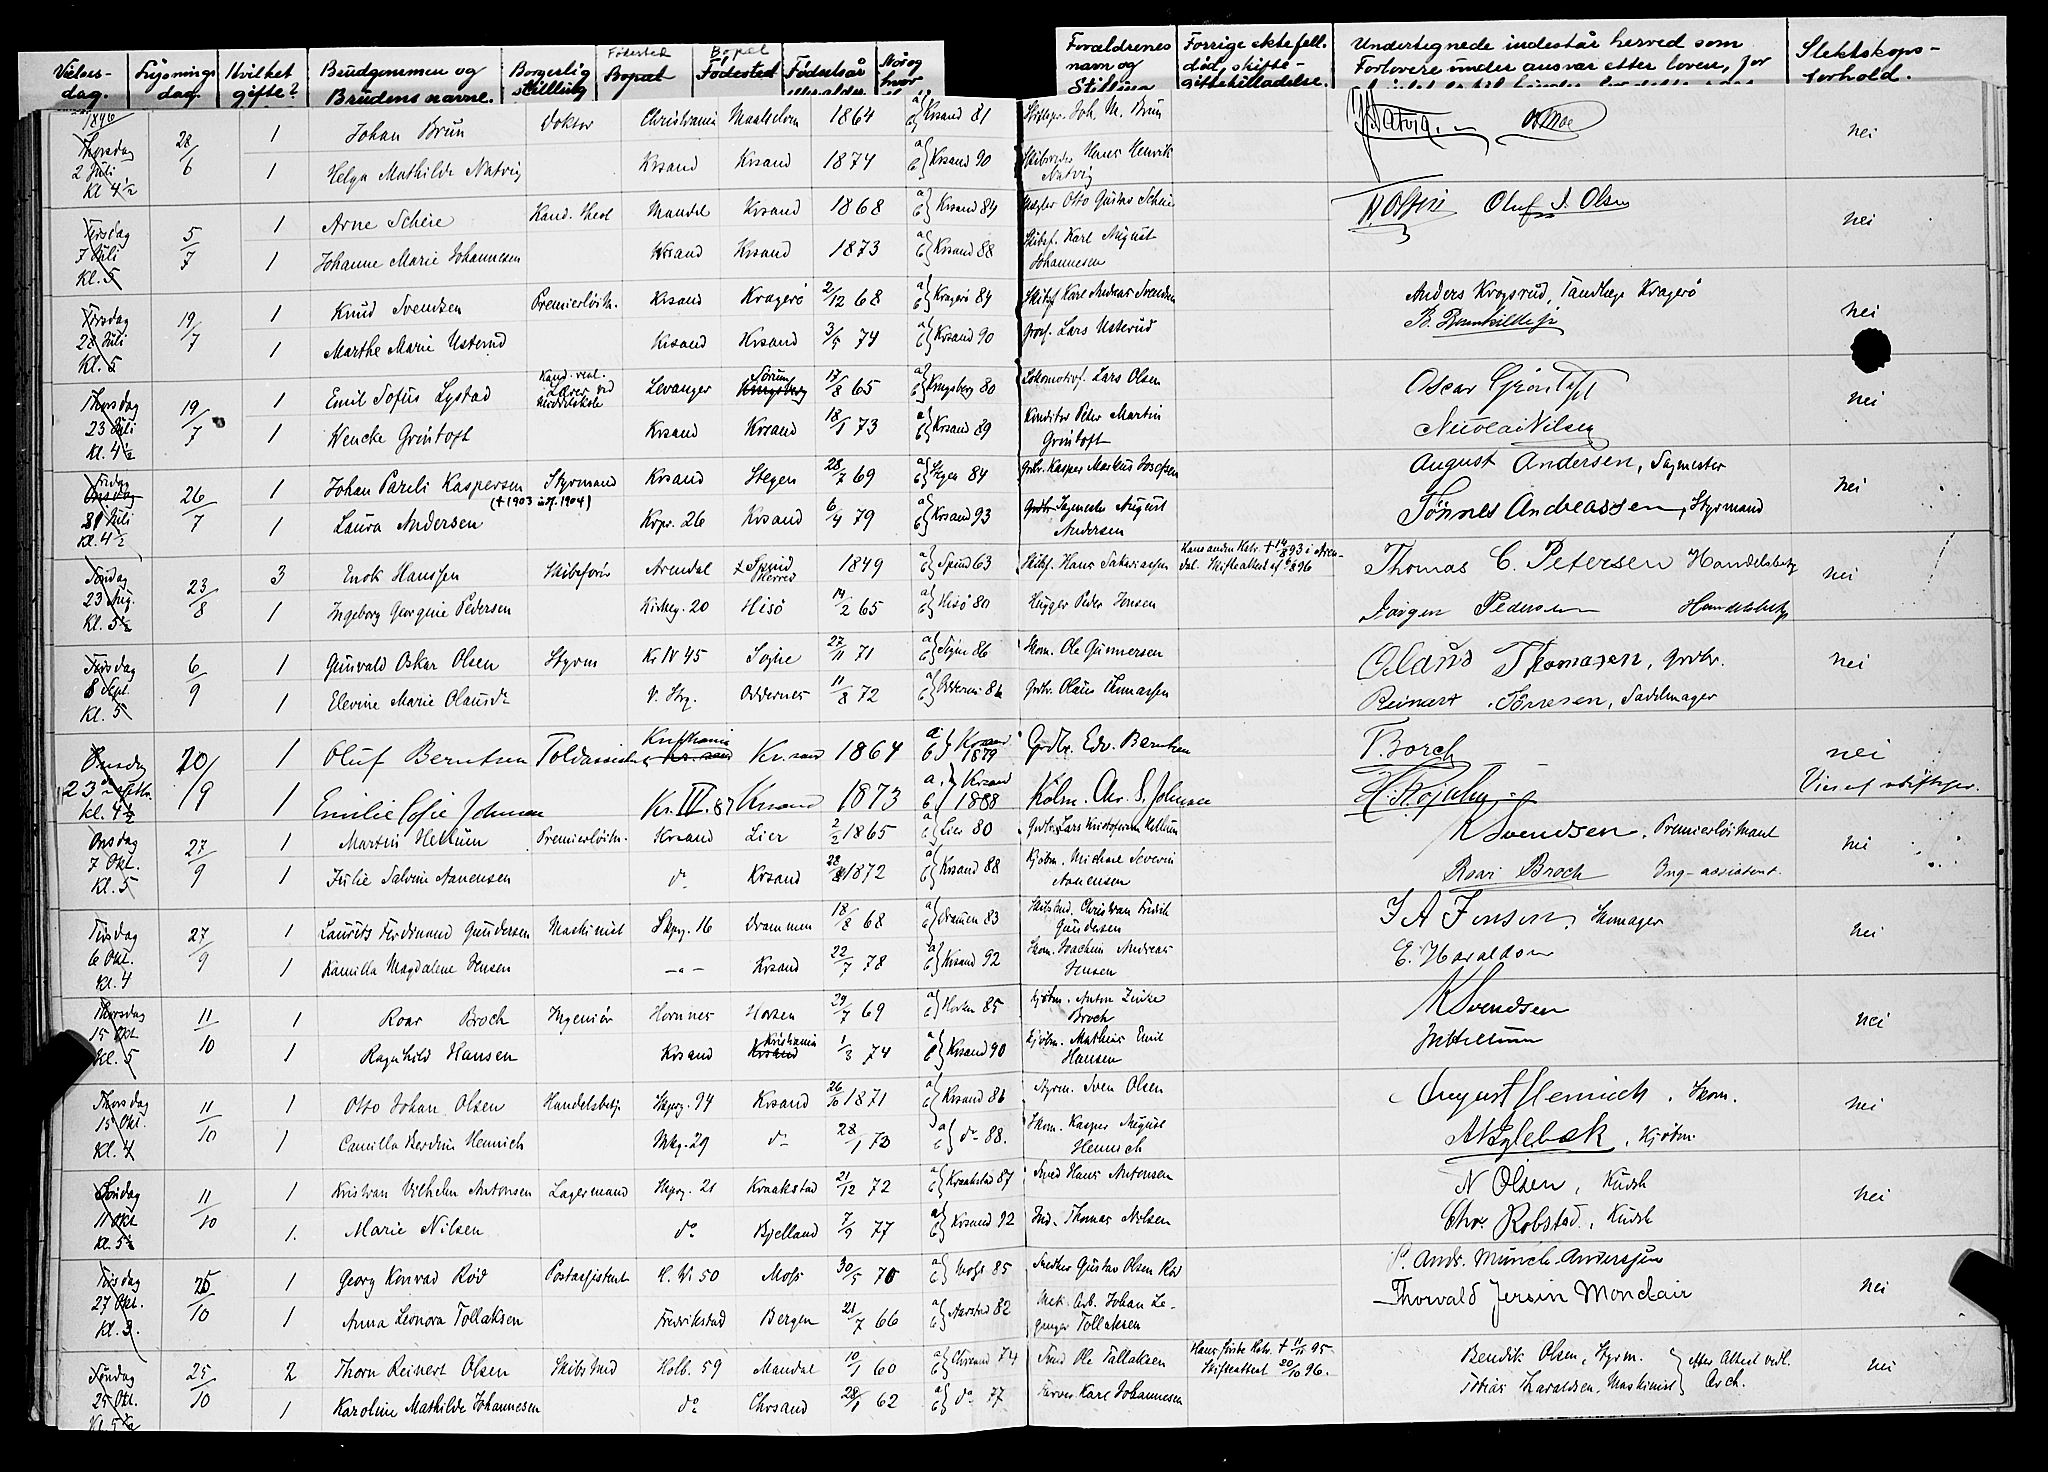 Vielses-dag. Lysnings dag. Hvilket gifte? Brudgommen og Brudens navne. Borgerlig stilling Fødested Bopæl Bopæl Fødested Fødselsår Når og hvor
Forældrenes navn og Stilling Forrige ektefell. død, skifte- Undertegnede indestår herved som Forlovere under ansvar efter loven, for Slektskops-forhold.
1896
Thorsdag 2 Juli Kl 4½ 28/6 1 Johan Brun Doktor Christiania Maalselven 1864 a b} Krsand 81 Joh. M. Brun nei
1 Helga Mathilde Natvig Krsand Krsand 1874 a b} Krsand 90 Hans Henrik Natvig
Tirsdag 7 Juli Kl. 5 5/7 1 Arne Scheie Kand. theol Mandal Krsand 1868 a b} Krsand 84 Otto Gustav Scheie Oluf S. Olsen nei
1 Johanne Marie Johannesen Krsand Krsand 1873 a b} Krsand 88 Skibsf. Karl August Johannesen
Tirsdag 28 Juli Kl. 5 19/7 1 Knud Svendsen Premierløitn. Krsand Kragerø 2/12 68 a b} Kragerø 84 Karl Andreas Svendsen Anders Krogsrud, Tandlæge Kragerø nei
1 Marthe Marie Usterud Krsand Krsand 3/5 74 a b} Krsand 90 Lars Usterud
Thorsdag 23 Juli Kl. 4½ 19/7 1 Emil Sofus Lystad Kand. real. Lærer ved Middelskole Levanger Sørum Kongsberg 17/8 65 a b} Kongsberg 80 Lokomotivf. Lars Olsen Oscar Gröntoft nei
1 Wencke Grøntoft Krsand Krsand 18/1 73 a b} Krsand 89 Konditor Peter Martin Grøntoft Nicolai Nilsen
Fredag Onsdag 31 Juli Kl. 4½ 26/7 1 Johan Pareli Kaspersen Styrmand Krsand Stegen 28/7 69 a b} Stegen 84 Grdbr. Kasper Markus Josefsen August Andersen, Sagmester nei
(† 1903 1904)
1 Laura Andersen Krpr. 26 Krsand 6/4 79 a b} Krsand 93 Grdbr. Sagmester August Andersen Tönnes Andreassen, Styrmand
Søndag 23 Aug. Kl. 5½ 23/8 3 Enok Hanssen Skibsfører Arendal Spind Herred 1849 a b} Spind 63 Skibsf. Hans Sakariassen Hans anden Kstr. † 14/8 93 i Arendal. Skifteattest af 96 Thomas C. Petersen Handelsbetj nei
1 Ingeborg Georgine Pedersen Kirkeg. 20 Hisø 14/2 65 a b} Hisø 80 Peder Jensen Jørgen Pedersen Handelsbetj
Tirsdag 8 Sept. Kl. 5 6/9 1 Gunvald Oskar Olsen Styrm Kr IV 45 Søgne 27/11 71 a b} Søgne 86 Skom. Ole Gunnersen Olaus Thomasen, Grdbr. nei
1 Elevine Marie Olausdr V. Strg. Oddernes 11/8 72 a b} Oddernes 86 Grdbr. Olaus Thomassen Reinart Sörresen, Sadelmager
Onsdag 23de Septbr. kl. 4½ 20/9 1 Oluf Berntsen Toldassistent Kristiania Kr. sand Kr. sand 1864 a b} Krsand 1879 Grdbr. Edv. Berntsen Borch nei
1 Emilie Sofie Johnsen Kr. IV. 87 Krsand 1873 a. b} Krsand 1888 Kölm. Chr. S. Johnsen
Onsdag 7 Okt. Kl. 5 27/9 1 Martin Hellum Premierløitn. Krsand Lier 2/2 1865 a b} Lier 80 Grdbr. Lars Kristofersen Hellum K Svendsen, Premierløitnant nei
1 Julie Salvine Aanensen do Krsand 28/8 1872 a b} Krsand 88 Kjøbm. Michael Severin Aanensen Roar Broch Ing-assistent.
Tirsdag 6 Okt. Kl. 4 27/9 1 Laurits Ferdinand Gundersen Maskinist Skpg. 16 Drammen 18/8 68 a b} Dramen 83 Skibstmd. Christian Fredrik Gundersen J A Jensen, Skomager nei
1 Kamilla Magdalene Jensen —"— Krsand 22/7 78 a b} Krsand 92 Skom. Joachim Andreas Jensen E. Haraldsen
Thorsdag 15 Okt Kl. 5 11/10 1 Roar Broch Ingeniør Hornnes Horten 29/7 69 a b} Horten 85 Kjøbm. Anton Zinke Broch K Svendsen nei
1 Ragnhild Hansen Krsand Kristiania Krsand 1/3 74 a b} Krsand 90 Kjøbm. Mathias Emil Hansen
Thorsdag 15 Okt. Kl. 4 11/10 1 Otto Johan Olsen Handelsbetj. Skprg. 94 Krsand 26/10 1871 a b} Krsand 86 Styrm. Sven Olsen August Hennich, Skom. nei
1 Camilla Berdine Hennich Mkg. 29 do 28/1 73 a b} do 88. Skom. Kasper August Hennich A Byglebæk, Kjøbm.
Søndag 11 Okt Kl. 5½ 11/10 1 Kristian Vilhelm Antonsen Lagermand Skprg. 21 Kraakstad 21/12 72 a b} Kraakstad 87 Smed Hans Antonsen N Olsen, Kudsk nei
1. Marie Nilsen do Bjelland 7/9 77 a b} Krsand 92 Thomas Nilsen Chr. Robstad, Kudsk
Tirsdag 27 Okt. Kl. 3. 25/10 1 Georg Konrad Rød Postassistent K. Vi 50 Moss 30/5 70 a b} Moss 85 Snedker Gustav Olsen Rød P. Andr. Münch-Anderssen nei
1 Anna Leonora Tollaksen Fredrikstad Bergen 21/7 66 a b} Aarstad 82 Mek. Arb. Johan Leganger Tollaksen Thorvald Jersin Monclair
Søndag 25 Okt. Kl. 5½ 25/10 2 Thorn Reinert Olsen Skibstmd Holb. 59 Mandal 10/1 60 a b} Chrsand 74 Smd Ole Tallaksen Hans første Kstr. † 11/11 95. Skifteattest 20/10 96. Bendik Olsen, Styrm. nei
1 Karoline Mathilde Johannesen do Chrsand 28/1 62 a b} do 77 Farver Karl Johannesen Tobias Haraldsen, Maskinist } efter Attest vedl. Arch.